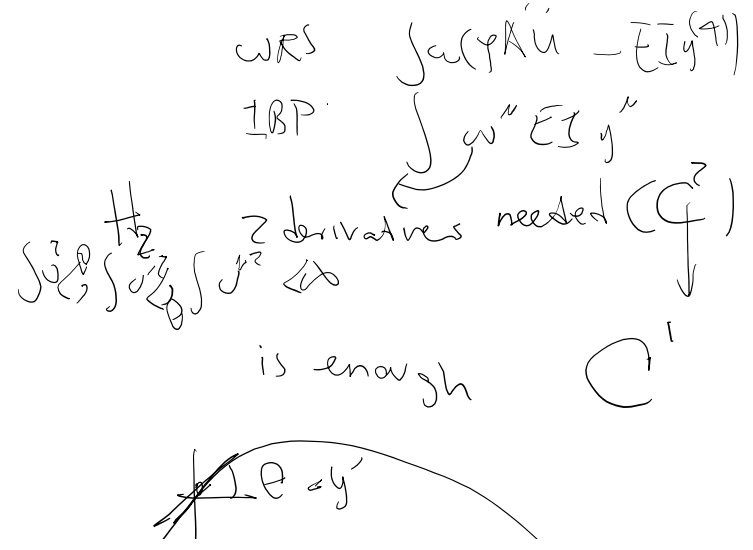 WRS ∫w(ρAü - EIy⁽⁴⁾)
IBP ∫ w'' EI y''
H₂ 2 derivatives needed (C²)
is enough C¹
θ = y'